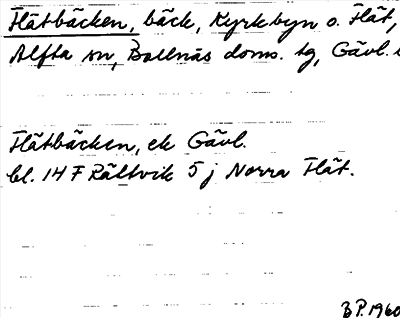 Flätbäcken, bäck, Kyrkbyn o. Flät,
Alfta sn, Bollnäs doms. tg, Gävl.
Flätbäcken, ek Gävl.
bl. 14 F Rättvik 5 j Norra Flät.
B P. 1960